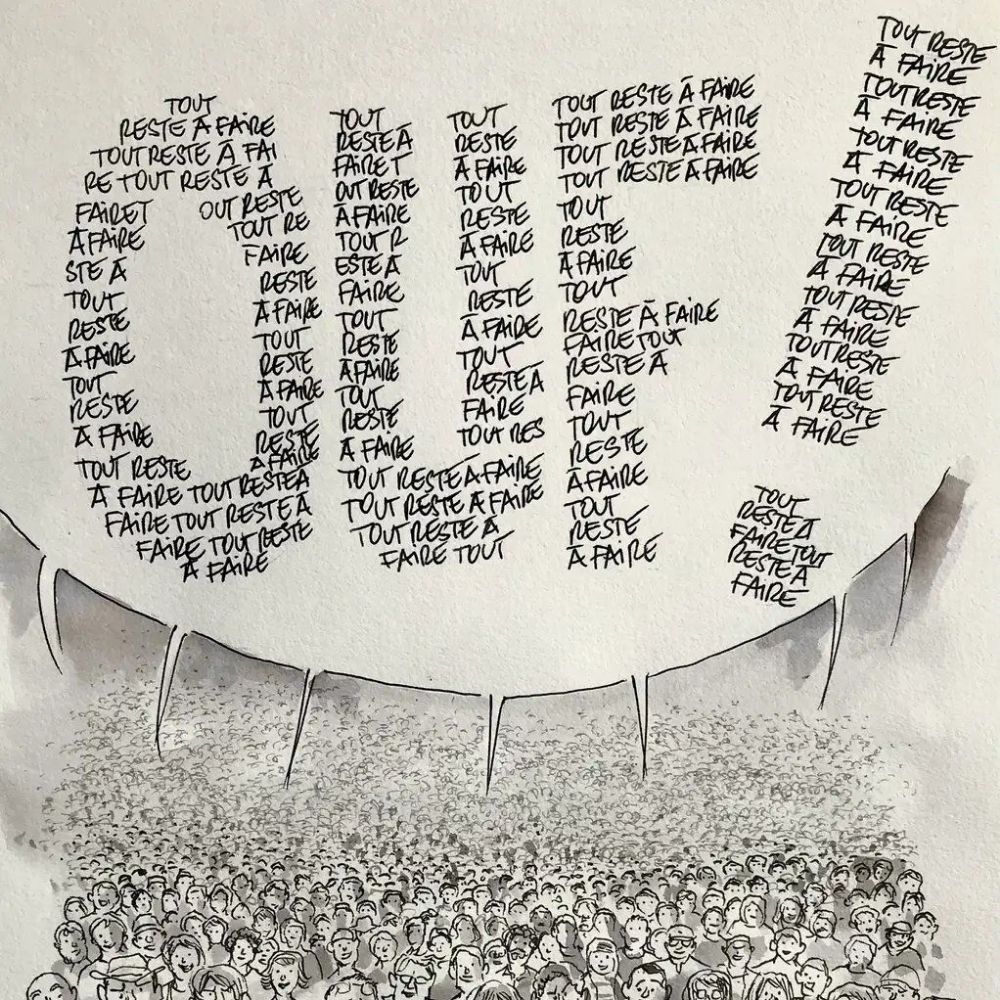 TOUT
RESTE À FAIRE
TOUT RESTE À FAI
RE TOUT RESTE À
FAIRET OUT RESTE
À FAIRE TOUT RE
STE À FAIRE
TOUT RESTE
RESTE À FAIRE
À FAIRE TOUT
TOUT RESTE
RESTE À FAIRE
À FAIRE TOUT
RESTE
TOUT RESTE À FAIRE
À FAIRE TOUT RESTE À
FAIRE TOUT RESTE À
FAIRE TOUT RESTE
À FAIRE
TOUT TOUT
RESTE À RESTE
FAIRE T À FAIRE
OUT RESTE TOUT
À FAIRE RESTE
TOUT R À FAIRE
ESTE À TOUT
FAIRE RESTE
TOUT À FAIRE
RESTE TOUT
À FAIRE RESTE À
TOUT FAIRE
RESTE TOUT RES
À FAIRE
TOUT RESTE À FAIRE
TOUT RESTE À FAIRE
TOUT RESTE À
FAIRE TOUT
TOUT RESTE À FAIRE
TOUT RESTE À FAIRE
TOUT RESTE À FAIRE
TOUT RESTE À FAIRE
TOUT
RESTE
À FAIRE
TOUT
RESTE À FAIRE
FAIRE TOUT
RESTE À
FAIRE
TOUT
RESTE
À FAIRE
TOUT
RESTE
À FAIRE
TOUT RESTE
À FAIRE
TOUT RESTE
À FAIRE
TOUT RESTE
À FAIRE
TOUT RESTE
À FAIRE
TOUT RESTE
À FAIRE
TOUT RESTE
À FAIRE
TOUT RESTE
À FAIRE
TOUT RESTE
À FAIRE
TOUT
RESTE À
FAIRE TOUT
RESTE À
FAIRE